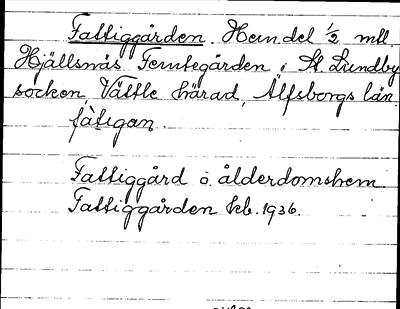 Fattiggården. Hemdel ½ mtl.
Hjällsnäs Femtegården i St. Lundby
socken, Vättle härad, Älfsborgs län.
fàtigan
Fattiggård o. ålderdomshem.
Fattiggården kb. 1936.